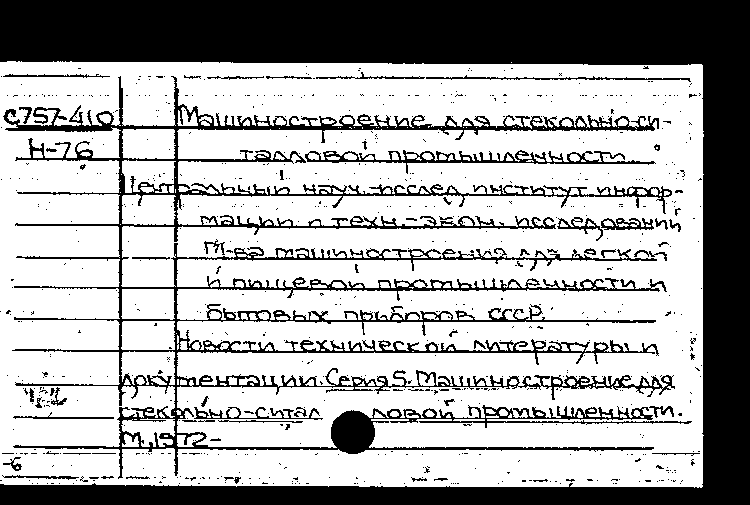 С757-410 Машиностроение для стекольно-си-
Н-76 талловой промышленности.
Центральный науч.-исслед. институт инфор-
мации и техн.-экон. исследований
М-ва машиностроения для легкой
и пищевой промышленности и
бытовых приборов СССР.
Новости технической литературы и
документации. Серия 5. Машиностроение для
стекольно-ситалловой промышленности.
М., 1972-
-6